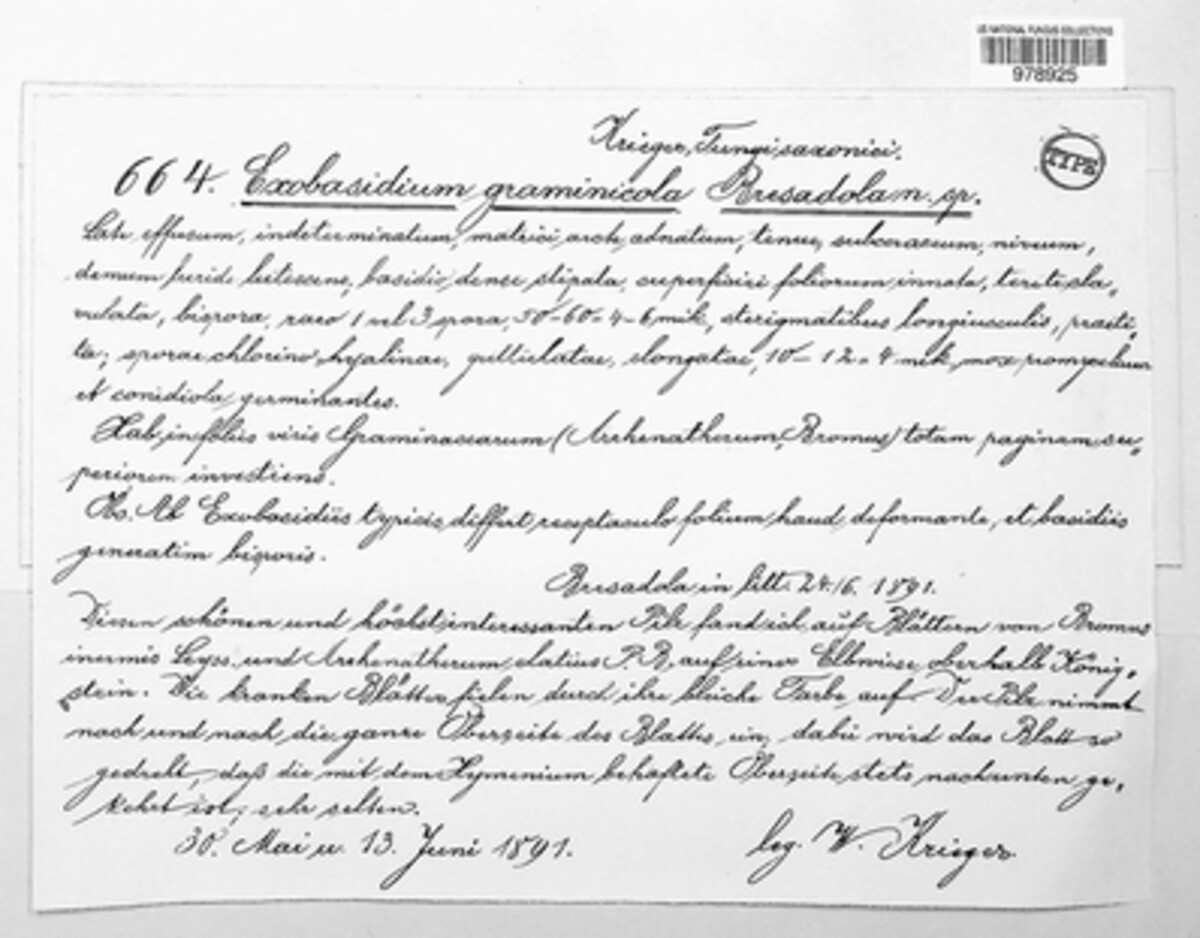 US NATIONAL FUNGUS COLLECTIONS
978925
Krieger, Fungi saxonici.
TYPE
664. Exobasidium graminicola Bresadola n. sp.
Late effusum, indeterminatum, matrici arcte adnatum, tenue, subceraceum, niveum,
demum luride lutescens, basidia dense stipata, superficiei foliorum innata, tereti cla-
vulata, bispora, raro 1 vel 3 spora, 50-60 = 4-6 mik, sterigmatibus longiusculis, praedi-
ta; sporae chlorino hyalinae, guttulatae, elongatae, 10-12 = 4 mik, mox promycelium
et conidiola germinantes.
Hab. in foliis vivis Graminacearum (Arrhenatherum, Bromus) totam paginam su-
periorem investiens.
Obs. Ab Exobasidiis typicis differt receptaculo folium haud deformante, et basidiis
generatim bisporis.
Bresadola in litt. 24./6. 1891.
Diesen schönen und höchst interessanten Pilz fand ich auf Blättern von Bromus
inermis Leyss. und Arrhenatherum elatius P. B. auf einer Elbwiese oberhalb König-
stein. Die kranken Blätter fielen durch ihre bleiche Farbe auf. Der Pilz nimmt
nach und nach die ganze Oberseite des Blattes ein, dabei wird das Blatt so
gedreht, daß die mit dem Hymenium behaftete Oberseite stets nach unten ge-
kehrt ist; sehr selten.
30. Mai u. 13. Juni 1891.
leg. W. Krieger.